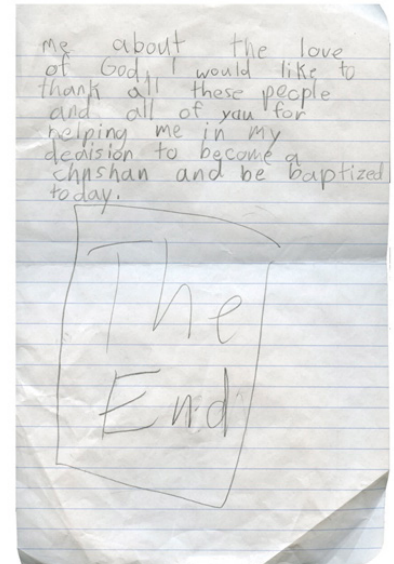 me about the love
of God, I would like to
thank all these people
and all of you for
helping me in my
decision to become a
chrishan and be baptized
today.
The
End